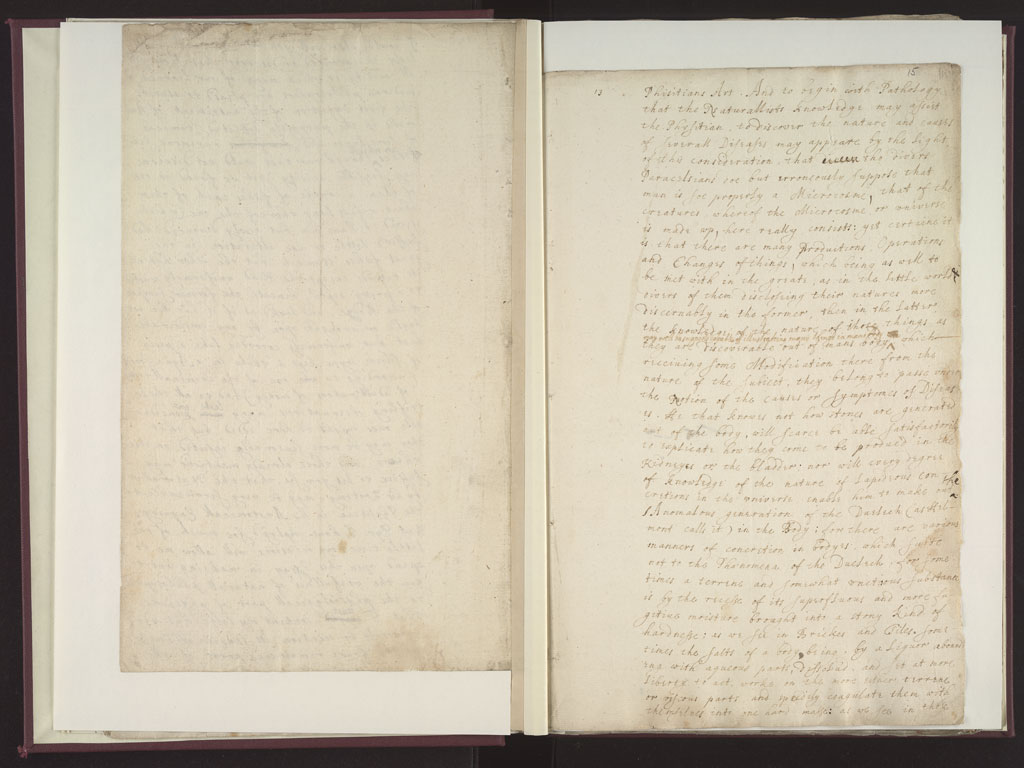 15
13
Phisitians Art. And to begin with Pathology,
that the Naturallists knowledge may assist
the Physitian, to discover the nature and causes
of severall Diseases may appeare by the light
of this consideration, that the divers
Paracelsians are but erroneously suppose that
man is soe properly a Microcosme, that of the
creatures, whereof the Microcosme or universe
is made up, here really consists: yet certaine it
is that there are many productions, Operations
and Changes of things, which being as well to
be met with in the greate, as in the little world &
divers of them disclosing their natures more
discernably in the former, then in the latter
the knowledge of the nature of those things as
they are discoverable out of mans body, which
receiving some Modification there from the
nature of the subject, they belong to passe under
the Notion of the causes or Symptomes of Diseas
es. He that knowes not how stones are generated
out of the body, will scarce be able satisfactorily
to explicate how they come to be produced in the
Kidneyes or the bladder: nor will every degree
of knowledge of the nature of Lapideous Con
cretions in the universe enable him to make out the
Anomalous generation of the Duelech (as Hel-
mont calls it) in the Body; for there are various
manners of concretion in bodyes, which
not to the Phænomena of the Duelech. for some
times a terrene and somewhat unctuous substance
is by the recesse of its superfluous and more fu
gitive moisture brought into a stony kind of
hardnesse; as we see in Brickes and Tiles. some
times the salts of a body being, by a Liquor abound
ing with aqueous parts, dissolved, and set at more
liberty to act, worke on the more terrene
or viscous parts, and speedily coagulate them with
themselves into one hard masse: as we see in those